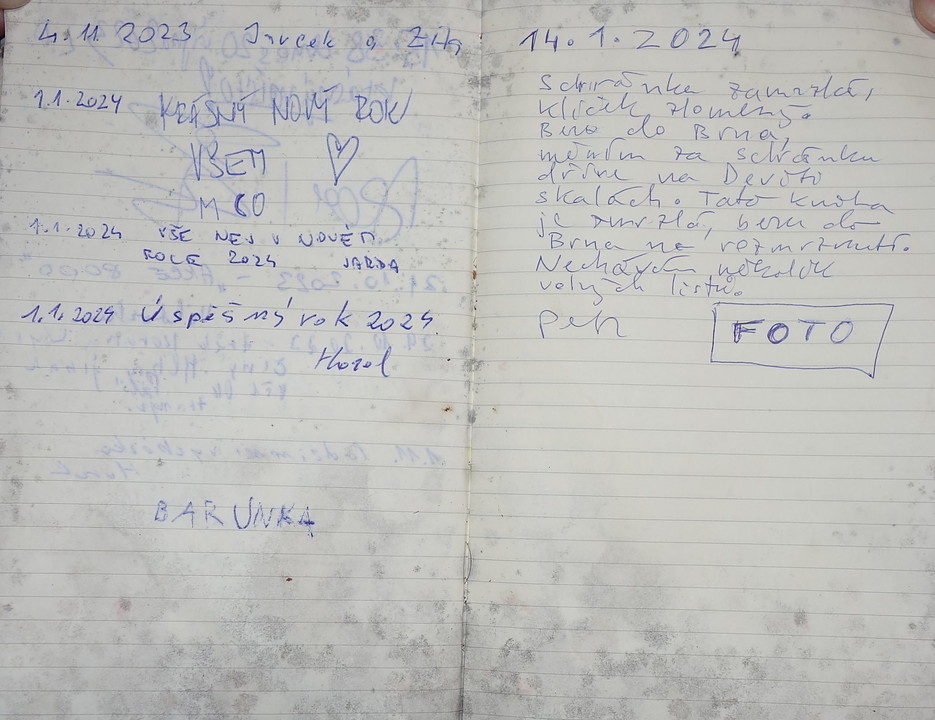 4.11 2023 a
1.1.2024 KRÁSNÝ NOVÝ ROK
VŠEM
1.1.2024 VŠE NEJ V NOVÉM
ROCE 2024 JARDA
1.1.2024 Úspěšný rok 2024
BARUNKA
14.1.2024
Schránka zamrzlá,
klíček zlomený.
Beru do Brna,
měním za schránku
dříve na Devíti
skalách. Tato kniha
je zmrzlá, beru do
Brna na rozmrznutí.
Nechávám několik
volných listů.
Petr
FOTO